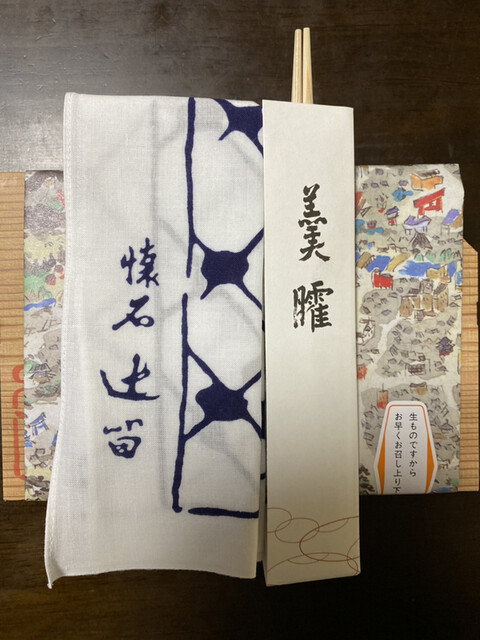 懐石 辻留
羹臛
生ものですから
お早くお召し上り下